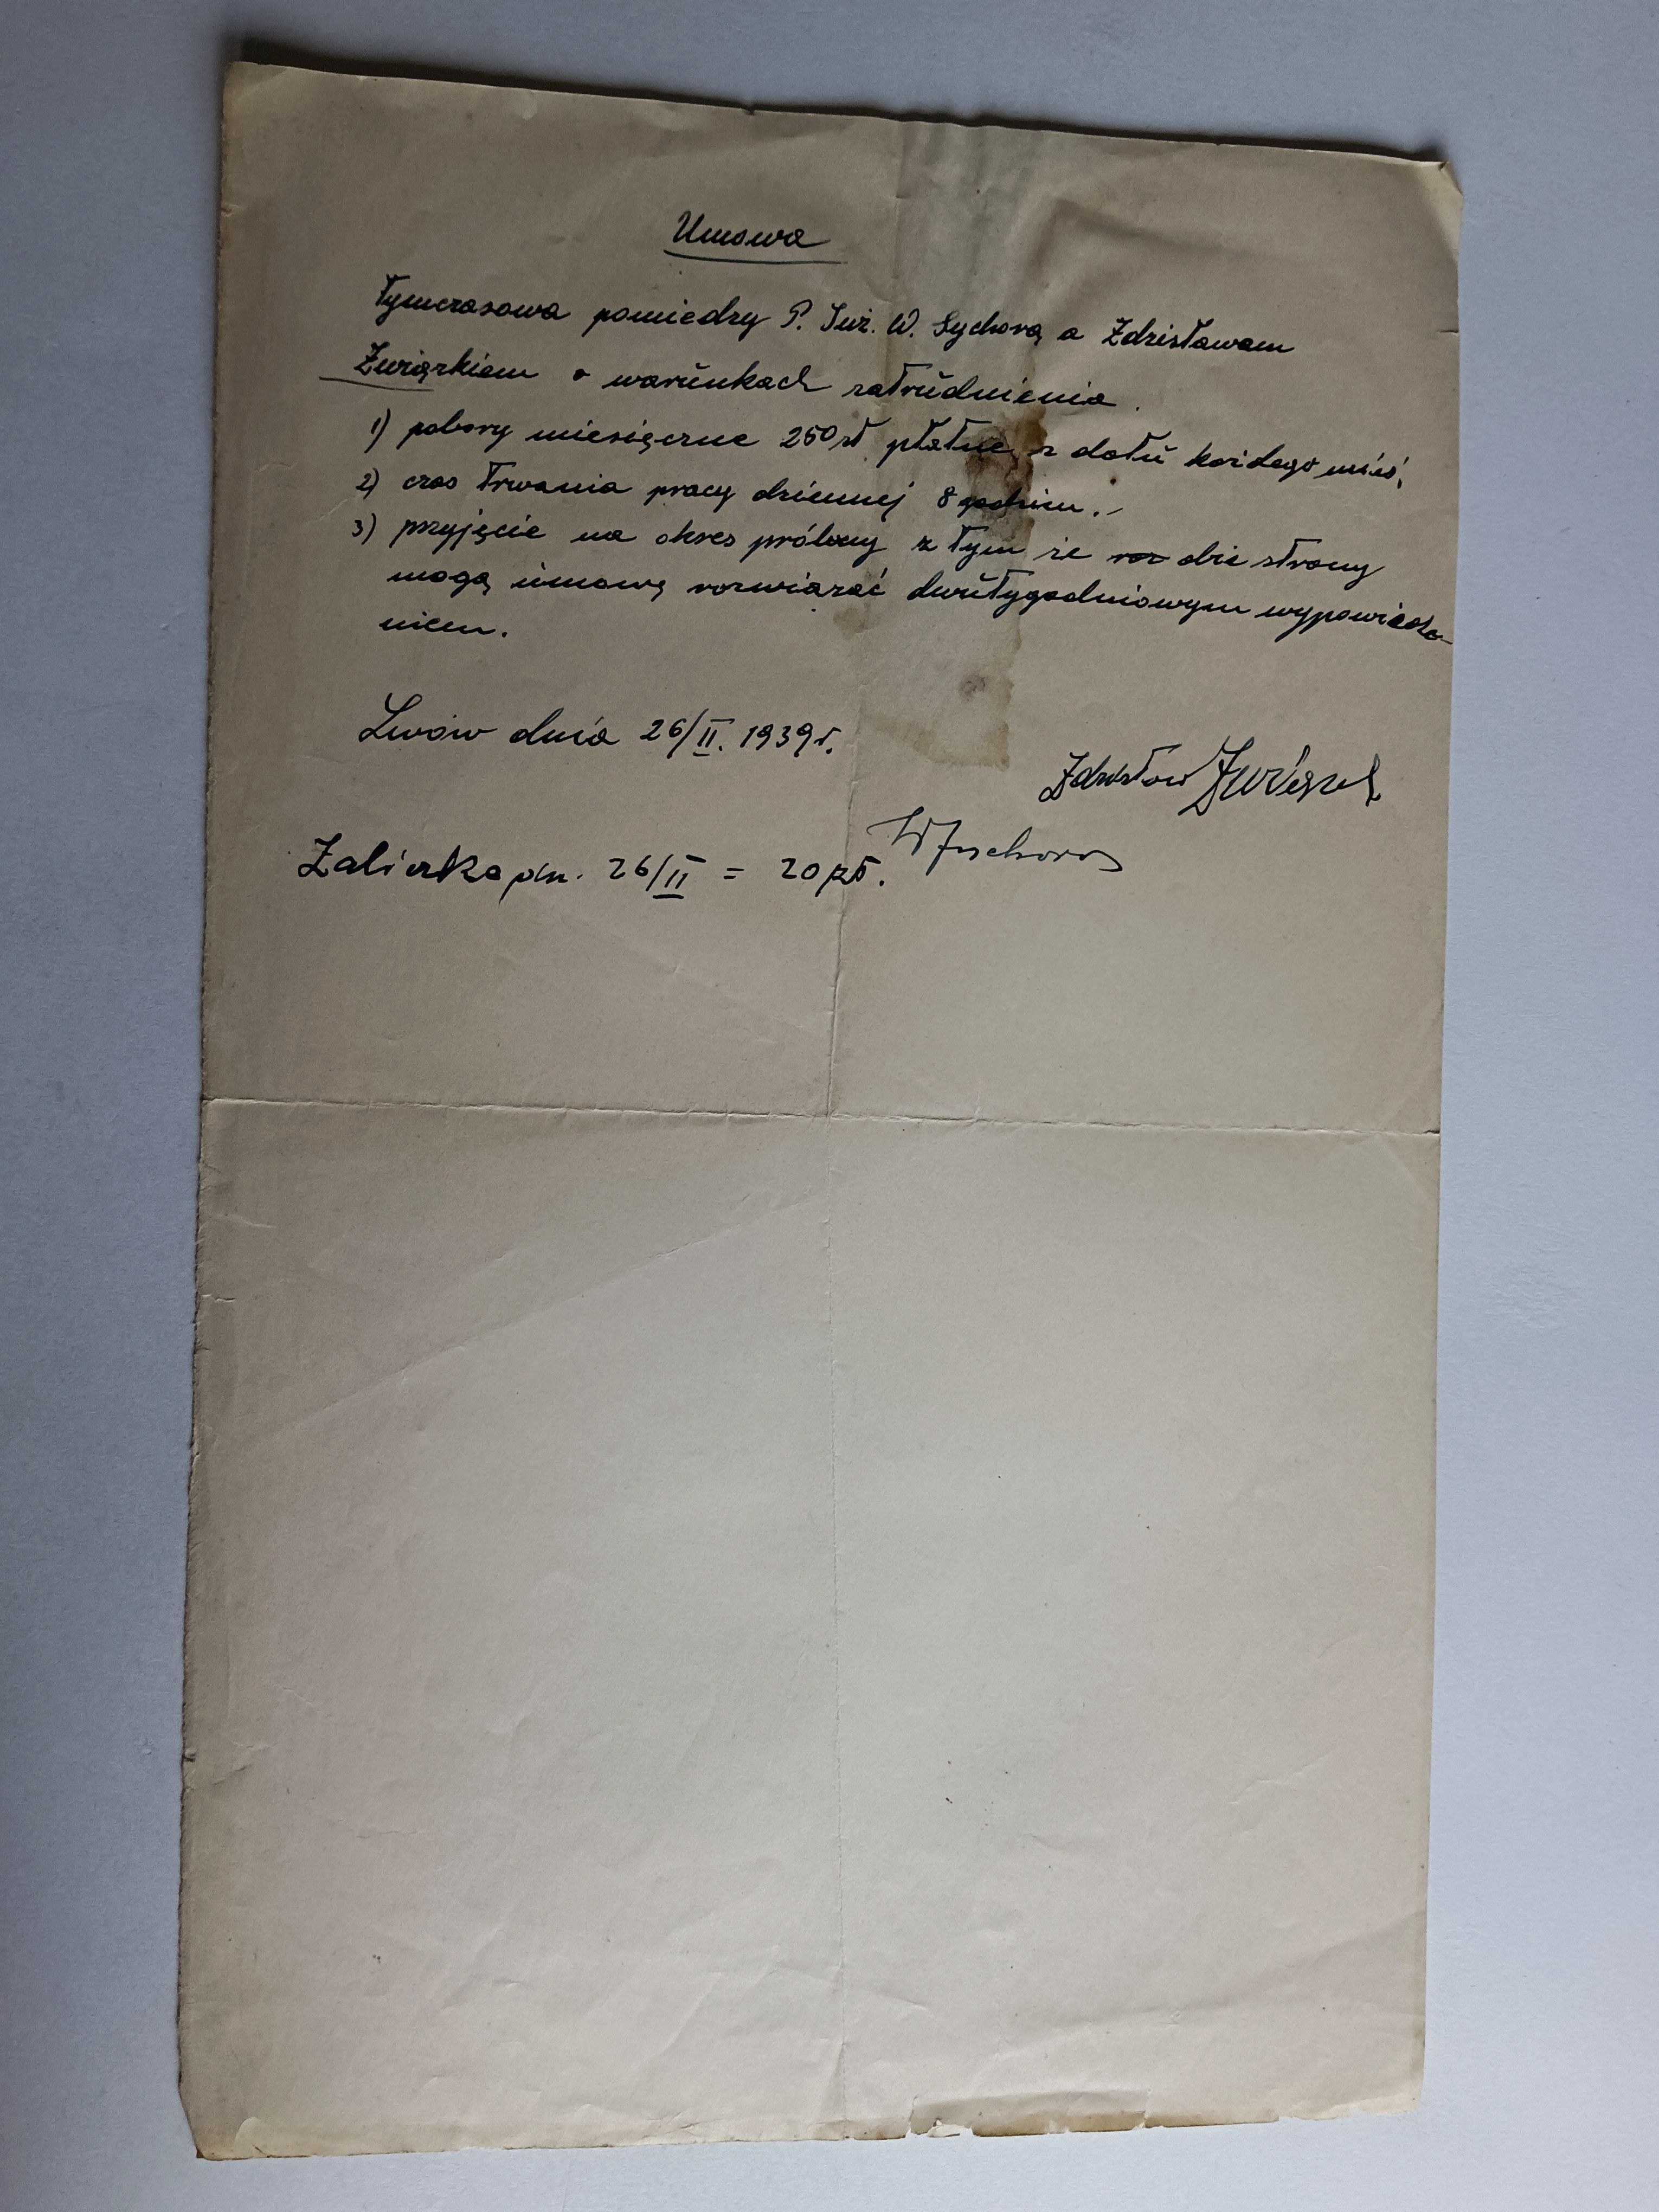 Umowa
tymczasowa pomiedzy P. Inż. W. Sychorą a Zdzisławem
Związkiem o warunkach zatrudnienia.
1) pobory miesięczne 250 zł płatne z dołu każdego mieś.
2) czas trwania pracy dziennej 8 godzin.-
3) przyjęcie na okres próbny z tym że roz obie strony
mogą umowę rozwiązać dwutygodniowym wypowiedze-
niem.
Lwów dnia 26/II. 1939 r.
Zdzisław Związek
Zaliczka dn. 26/II = 20 zł.